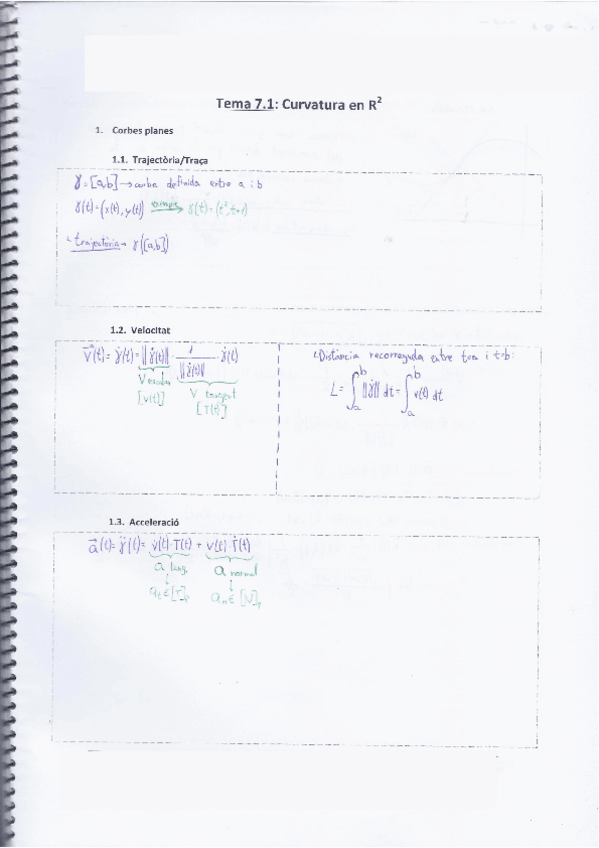 Tema 7.1: Curvatura en R²
1. Corbes planes
1.1. Trajectòria/Traça
γ = [a,b] → corba definida entre a i b
γ(t) = (x(t), y(t)) exemple → γ(t) = (t², t+1)
trajectòria → γ([a,b])
1.2. Velocitat
v⃗(t) = γ̇(t) = ||γ̇(t)|| · 1/||γ̇(t)|| · γ̇(t)
V escalar
[v(t)]
V tangent
[T(t)]
Distància recorreguda entre t=a i t=b:
L = ∫ₐᵇ ||γ̇|| dt = ∫ₐᵇ v(t) dt
1.3. Acceleració
a⃗(t) = γ̈(t) = v̇(t)·T(t) + v(t)·Ṫ(t)
a tang.
↓
a normal
↓